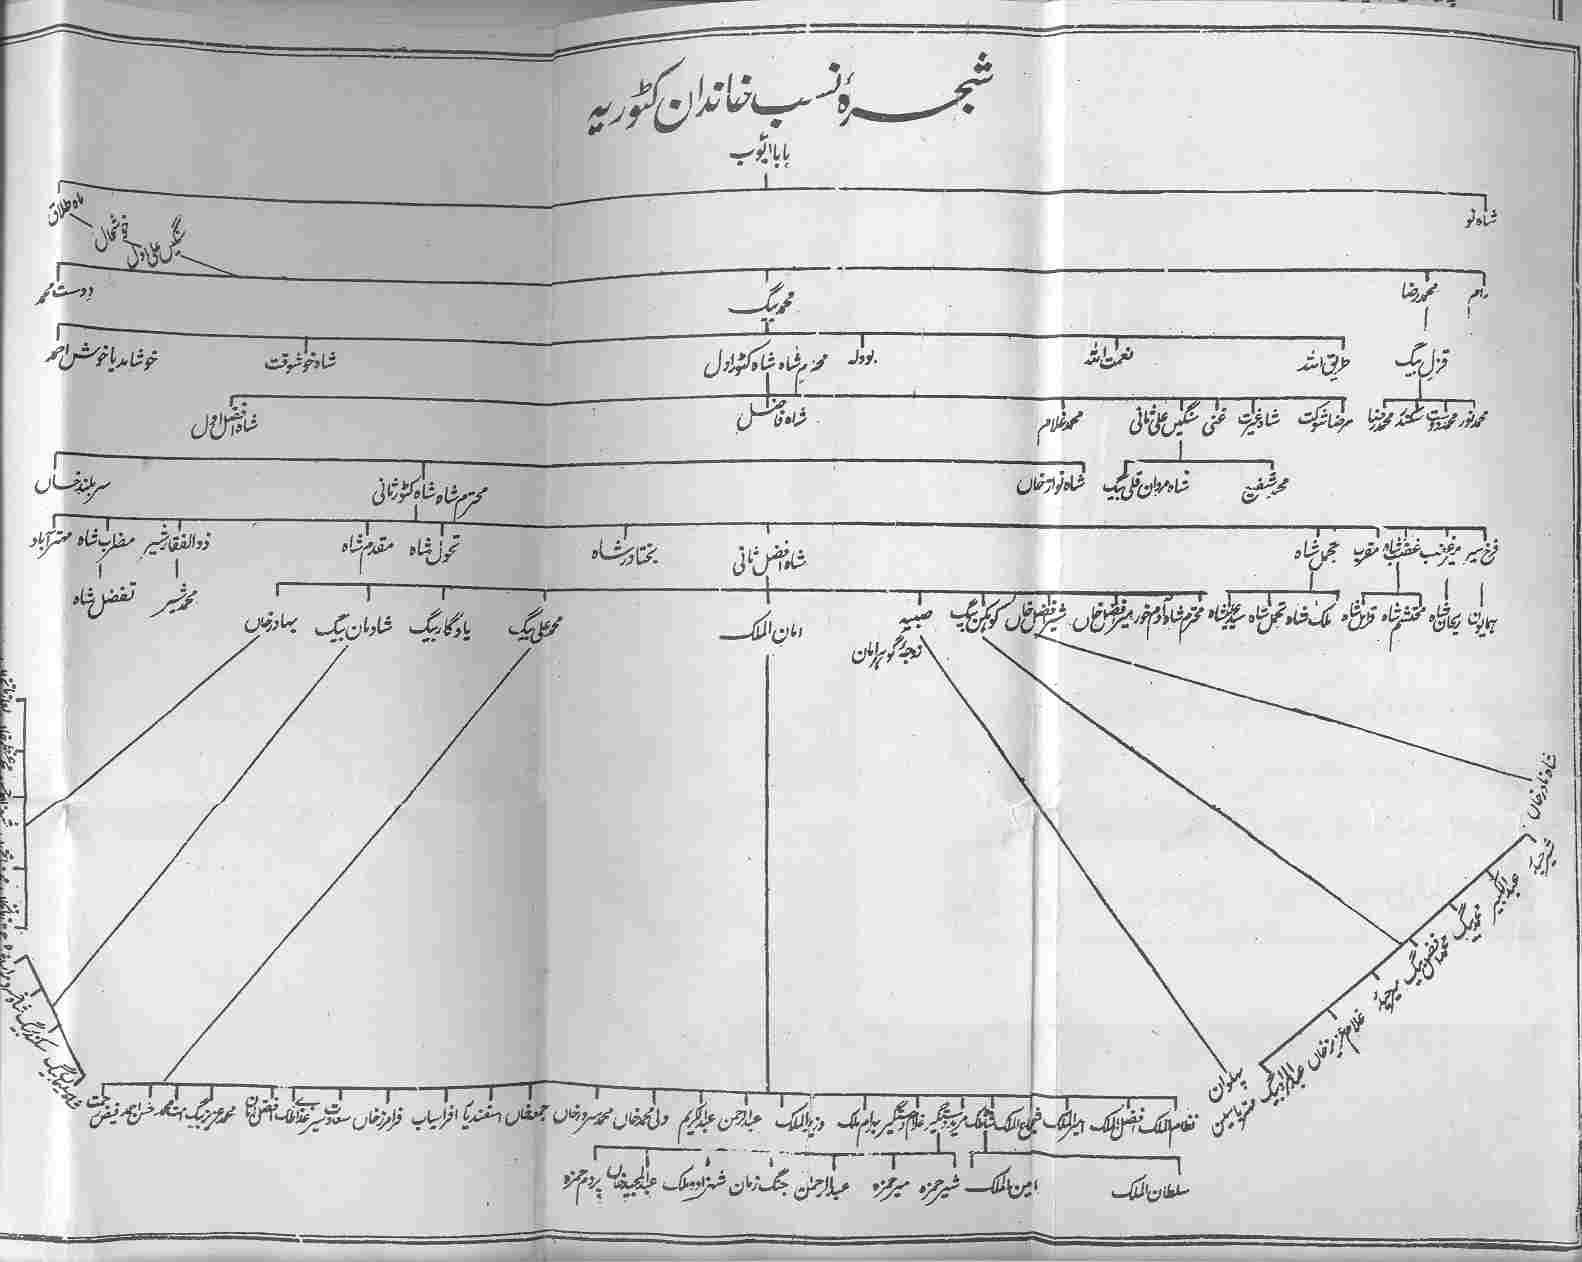 شجرۂ نسب خاندان کٹوریہ
بابا ایوب
شاہ نو
ماہ طلاق
خوشحال
سنگین علی اول
رام
محمد رضا
محمد بیگ
دوست محمد
قزل بیگ
طریق اللہ
نعمت اللہ
بودلہ
محترم شاہ شاہ کٹور اول
شاہ خوشوقت
خوشامد یا خوش احمد
محمد نور
محمد دوست
سکندر
محمد رضا
مرضا شوکت
شاہ غیرت
غنی
سنگین علی ثانی
محمد غلام
شاہ فاضل
شاہ افضل اول
محمد شفیع
شاہ مردان قلی بیگ
شاہ نواز خاں
محترم شاہ شاہ کٹور ثانی
سربلند خاں
فرخ سیر
میر عرب
غضب شاہ
مقرب
تجمل شاہ
شاہ افضل ثانی
بختاور شاہ
تحول شاہ
مقدم شاہ
ذوالفقار شیر
مضراب شاہ
مہتر آباد
محمد شیر
تفضل شاہ
ہمایون
ریحان شاہ
محتشم شاہ
قزل شاہ
ملک شاہ
تجمل شاہ
سید علی شاہ
محترم شاہ آدم خور
میر افضل خاں
شیر افضل خاں
کوہکن بیگ
صبیہ
زوجۂ گوہر امان
امان الملک
محمد علی بیگ
یادگار بیگ
شادمان بیگ
بہادر خاں
شاہ نادر خاں
شیر حیدر
عبدالکبیر
محمد بیگ
محمد افضل بیگ
میر حیدر
غلام عزیز خاں
عبداللہ بیگ
پہلوان
مہتر یاسین
نظام الملک
افضل الملک
امیر الملک
شجاع الملک
شاہ ملک
مرید دستگیر
غلام دستگیر
بہرام ملک
وزیر الملک
عبدالرحمن
عبدالکریم
ولی محمد خاں
محمد سرور خاں
جمعہ خاں
اسفندیار
افراسیاب
فرامرز خاں
محمد عزیز بیگ
حسن احمد
سلطان الملک
امین الملک
شیر حمزہ
میر حمزہ
عبدالرحمن
جنگ زمان
شہزادہ ملک
عبدالمجید خاں
پردم حمزہ
سکندر بیگ